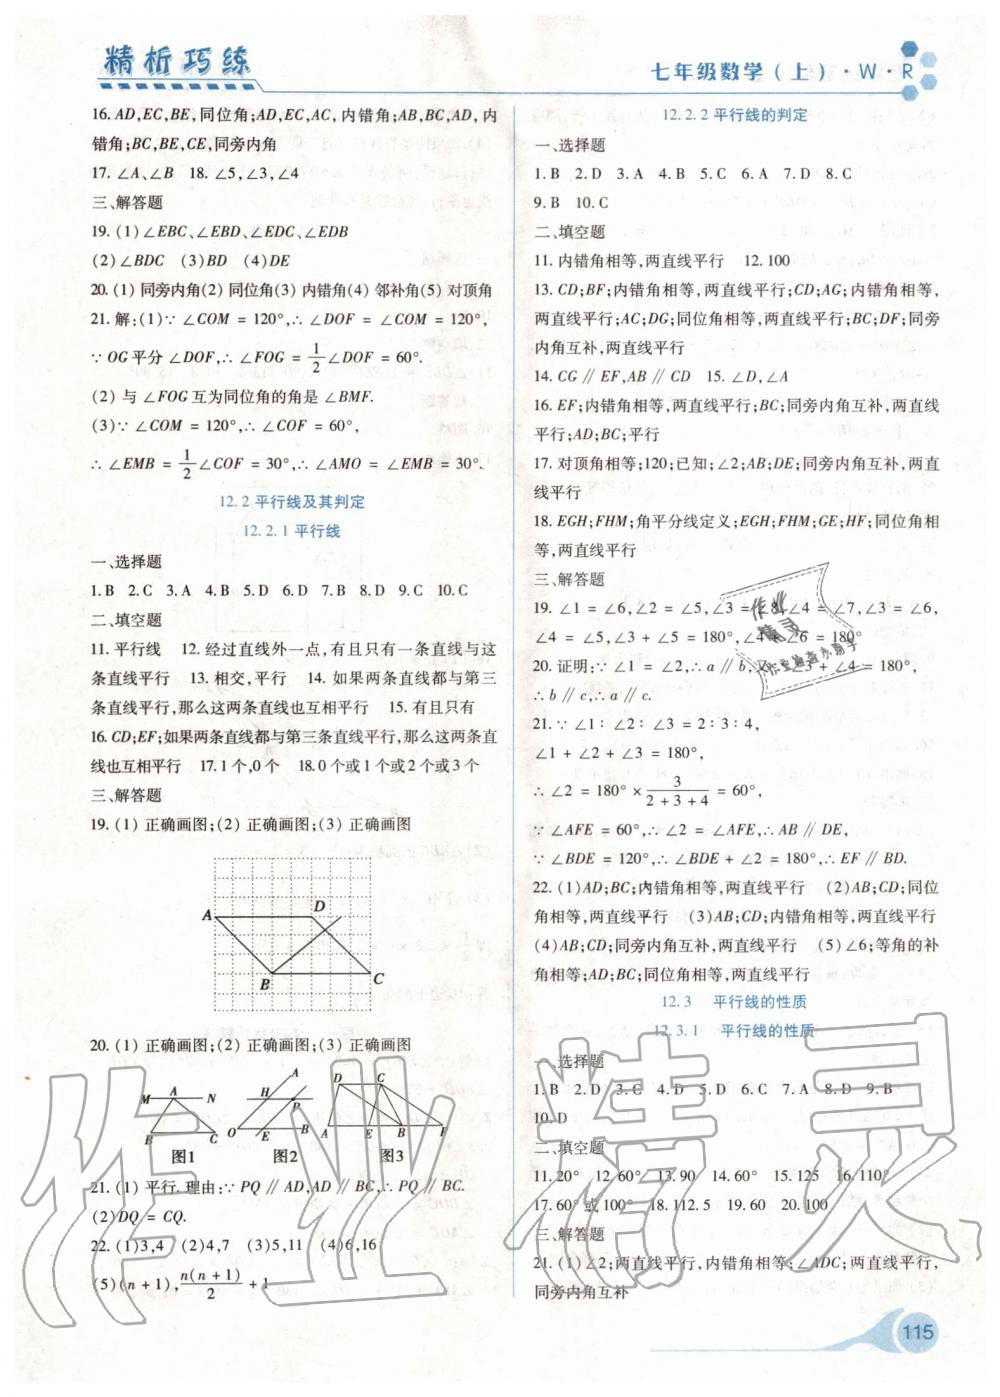 精析巧练
七年级数学(上)·W·R
16. AD,EC,BE,同位角;AD,EC,AC,内错角;AB,BC,AD,内
错角;BC,BE,CE,同旁内角
17. ∠A、∠B 18. ∠5,∠3,∠4
三、解答题
19. (1)∠EBC、∠EBD、∠EDC、∠EDB
(2)∠BDC (3)BD (4)DE
20. (1) 同旁内角(2) 同位角(3) 内错角(4) 邻补角(5) 对顶角
21. 解:(1)∵ ∠COM = 120°,∴ ∠DOF = ∠COM = 120°,
∵ OG平分 ∠DOF,∴ ∠FOG = 1/2∠DOF = 60°.
(2) 与 ∠FOG 互为同位角的角是 ∠BMF.
(3)∵ ∠COM = 120°,∴ ∠COF = 60°,
∴ ∠EMB = 1/2∠COF = 30°,∴ ∠AMO = ∠EMB = 30°.
12.2 平行线及其判定
12.2.1 平行线
一、选择题
1. B 2. C 3. A 4. B 5. D 6. D 7. B 8. D 9. C 10. C
二、填空题
11. 平行线 12. 经过直线外一点,有且只有一条直线与这
条直线平行 13. 相交,平行 14. 如果两条直线都与第三
条直线平行,那么这两条直线也互相平行 15. 有且只有
16. CD;EF;如果两条直线都与第三条直线平行,那么这两条直
线也互相平行 17. 1 个,0 个 18. 0 个或 1 个或 2 个或 3 个
三、解答题
19. (1) 正确画图;(2) 正确画图;(3) 正确画图
A D
B C
20. (1) 正确画图;(2) 正确画图;(3) 正确画图
M A N
B C
图1
A
H P
O E B
图2
D C
A E B F
图3
21. (1) 平行. 理由:∵ PQ ∥ AD,AD ∥ BC,∴ PQ ∥ BC.
(2)DQ = CQ.
22. (1)3,4 (2)4,7 (3)5,11 (4)6,16
(5)(n + 1),n(n + 1)/2 + 1
12.2.2 平行线的判定
一、选择题
1. B 2. D 3. A 4. B 5. C 6. A 7. D 8. C
9. B 10. C
二、填空题
11. 内错角相等,两直线平行 12. 100
13. CD;BF;内错角相等,两直线平行;CD;AG;内错角相等,
两直线平行;AC;DG;同位角相等,两直线平行;BC;DF;同旁
内角互补,两直线平行
14. CG ∥ EF,AB ∥ CD 15. ∠D,∠A
16. EF;内错角相等,两直线平行;BC;同旁内角互补,两直线
平行;AD;BC;平行
17. 对顶角相等;120;已知;∠2;AB;DE;同旁内角互补,两直
线平行
18. EGH;FHM;角平分线定义;EGH;FHM;GE;HF;同位角相
等,两直线平行
三、解答题
19. ∠1 = ∠6,∠2 = ∠5,∠3 = ∠8,∠4 = ∠7,∠3 = ∠6,
∠4 = ∠5,∠3 + ∠5 = 180°,∠4 + ∠6 = 180°
20. 证明:∵ ∠1 = ∠2,∴ a ∥ b,又∵ ∠3 + ∠4 = 180°,
∴ b ∥ c,∴ a ∥ c.
21. ∵ ∠1∶∠2∶∠3 = 2∶3∶4,
∠1 + ∠2 + ∠3 = 180°,
∴ ∠2 = 180° × 3/(2 + 3 + 4) = 60°,
∵ ∠AFE = 60°,∴ ∠2 = ∠AFE,∴ AB ∥ DE,
∵ ∠BDE = 120°,∴ ∠BDE + ∠2 = 180°,∴ EF ∥ BD.
22. (1)AD;BC;内错角相等,两直线平行 (2)AB;CD;同位
角相等,两直线平行 (3)AB;CD;内错角相等,两直线平行
(4)AB;CD;同旁内角互补,两直线平行 (5)∠6;等角的补
角相等;AD;BC;同位角相等,两直线平行
12.3 平行线的性质
12.3.1 平行线的性质
一、选择题
1. B 2. D 3. C 4. D 5. D 6. C 7. A 8. D 9. B
10. D
二、填空题
11. 20° 12. 60° 13. 90 14. 60° 15. 125 16. 110°
17. 60° 或 100° 18. 112.5 19. 60 20. 100
三、解答题
21. (1)∠2;两直线平行,内错角相等;∠ADC;两直线平行,
同旁内角互补
115
作业精灵
作业
精灵